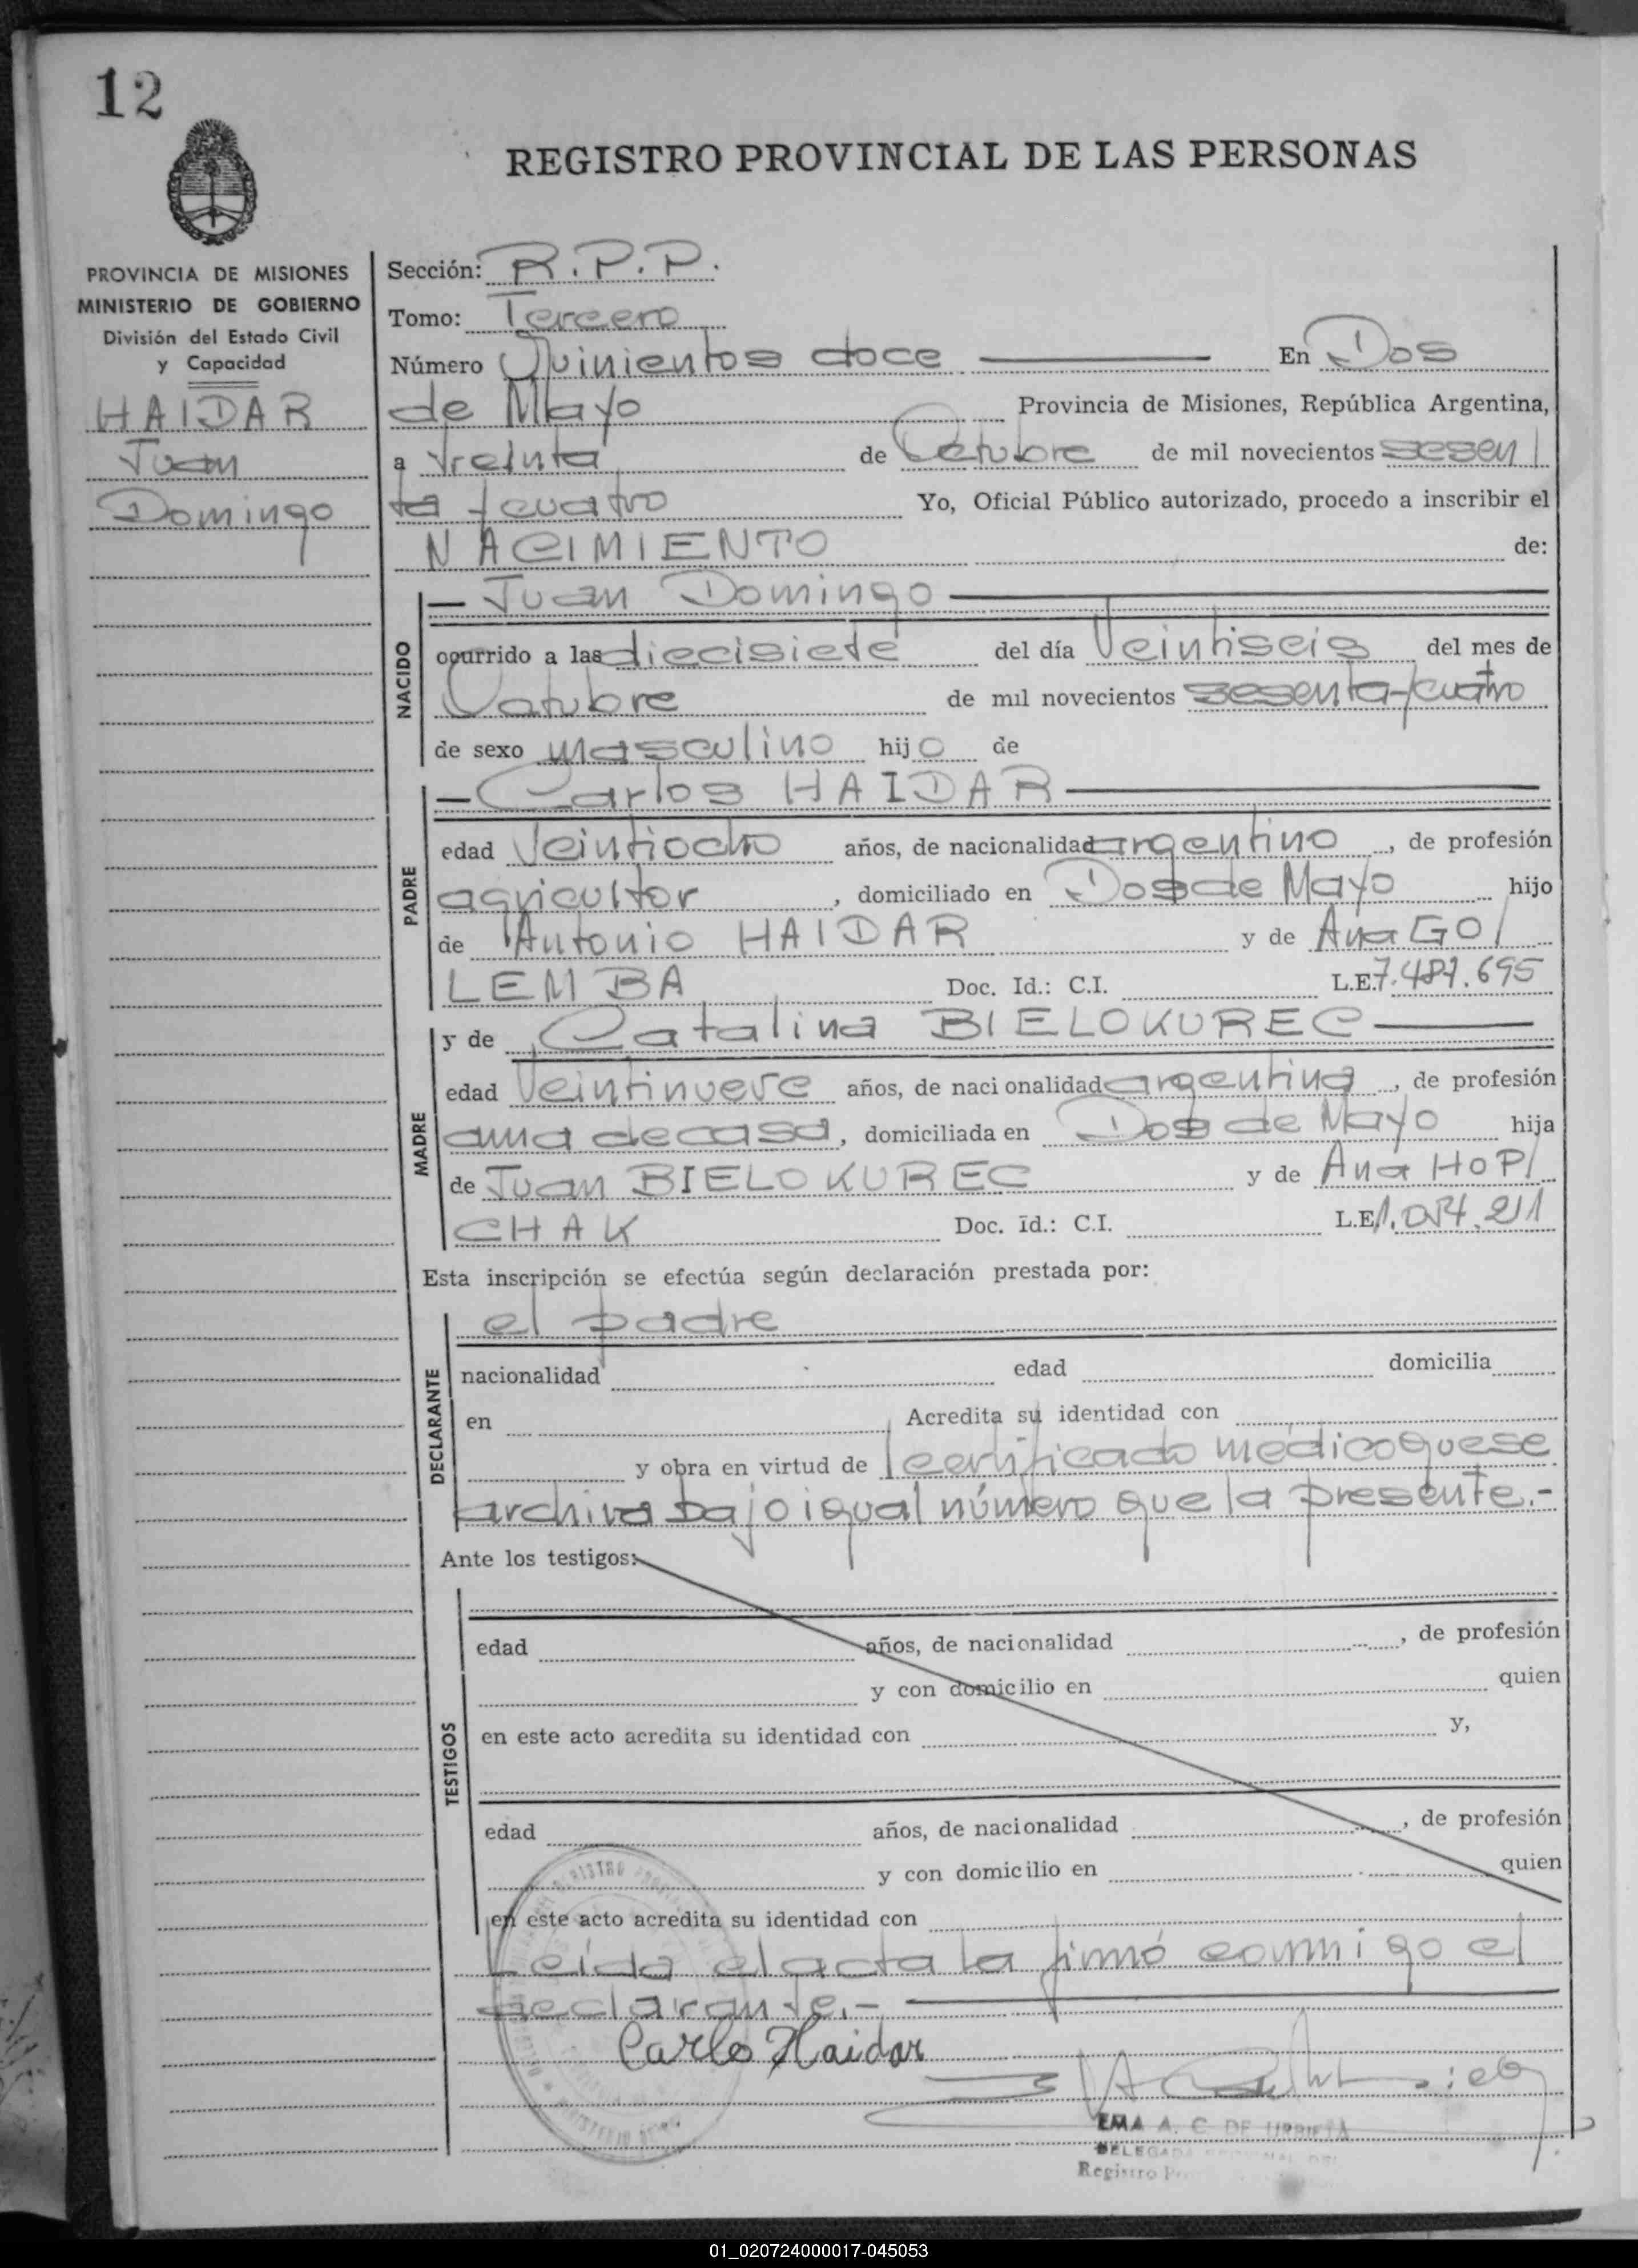 12
REGISTRO PROVINCIAL DE LAS PERSONAS
PROVINCIA DE MISIONES
MINISTERIO DE GOBIERNO
División del Estado Civil
y Capacidad
HAIDAR
Juan
Domingo
Sección: R.P.P.
Tomo: Tercero
Número Quinientos doce En Dos
de Mayo Provincia de Misiones, República Argentina,
a treinta de Octubre de mil novecientos sesen/
ta y cuatro Yo, Oficial Público autorizado, procedo a inscribir el
NACIMIENTO de:
NACIDO
— Juan Domingo —
ocurrido a las diecisiete del día Veintiseis del mes de
Octubre de mil novecientos sesenta y cuatro
de sexo masculino hijo de
PADRE
— Carlos HAIDAR —
edad Veintiocho años, de nacionalidad argentino, de profesión
agricultor, domiciliado en Dos de Mayo hijo
de Antonio HAIDAR y de Ana GO/
LEMBA Doc. Id.: C.I. L.E. 7.487.695
MADRE
y de Catalina BIELOKUREC —
edad Veintinueve años, de nacionalidad argentina, de profesión
ama de casa, domiciliada en Dos de Mayo hija
de Juan BIELOKUREC y de Ana HOP/
CHAK Doc. id.: C.I. L.E.
Esta inscripción se efectúa según declaración prestada por:
DECLARANTE
el padre
nacionalidad edad domicilia
en Acredita su identidad con
y obra en virtud de certificado médico que se
archiva bajo igual número que la presente.-
Ante los testigos:
TESTIGOS
edad años, de nacionalidad , de profesión
y con domicilio en quien
en este acto acredita su identidad con y,
edad años, de nacionalidad , de profesión
y con domicilio en quien
en este acto acredita su identidad con
Leída el acta la firmó conmigo el
declarante.-
Carlo Haidar
EMA A. C. DE URRIETA
DELEGADA
Registro
01_020724000017-045053